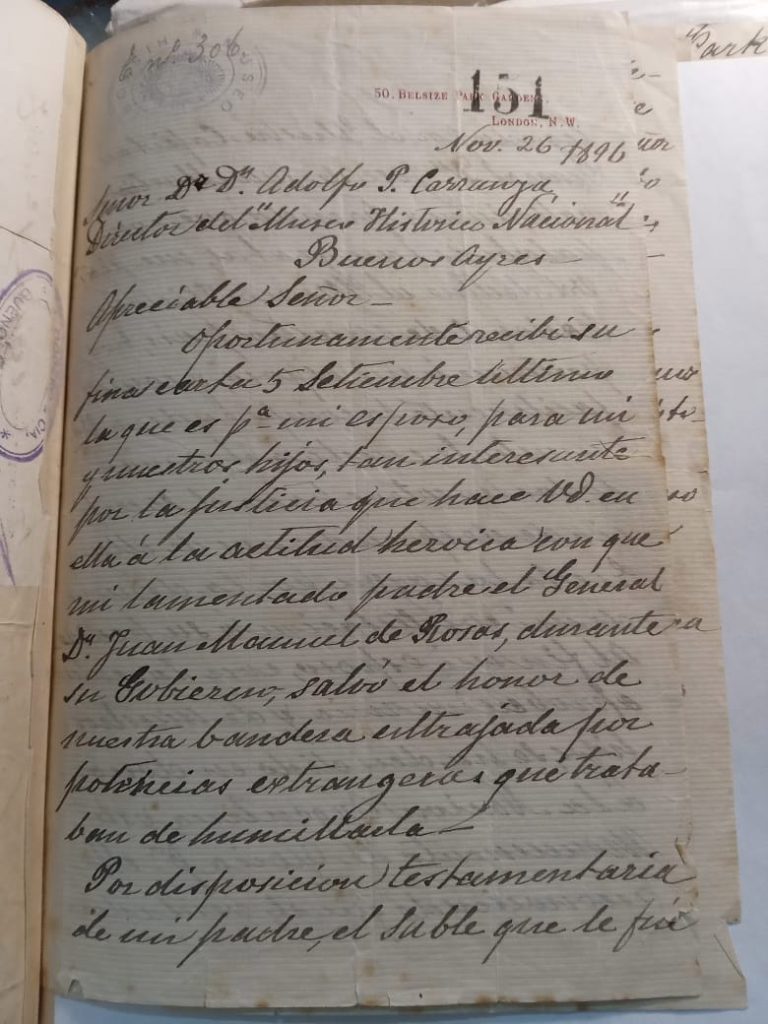 Eª nº 306
MUSEO
151
50, Belsize Park Gardens,
London, N.W.
Nov. 26 1896
Señor Dr Dn Adolfo P. Carranza
Director del "Museo Historico Nacional"
Buenos Ayres
Apreciable Señor—
Oportunamente recibi su
fina carta 5 Setiembre ultimo
la que es pª mi esposo, para mi
y nuestros hijos, tan interesante
por la justicia que hace Vd. en
ella á la actitud heroica con que
mi lamentado padre el General
Dn. Juan Manuel de Rosas, durante
su Gobierno, salvó el honor de
nuestra bandera ultrajada por
potencias extrangeras que trata-
ban de humillarla—
Por disposicion testamentaria
de mi padre, el sable que le fué
Park